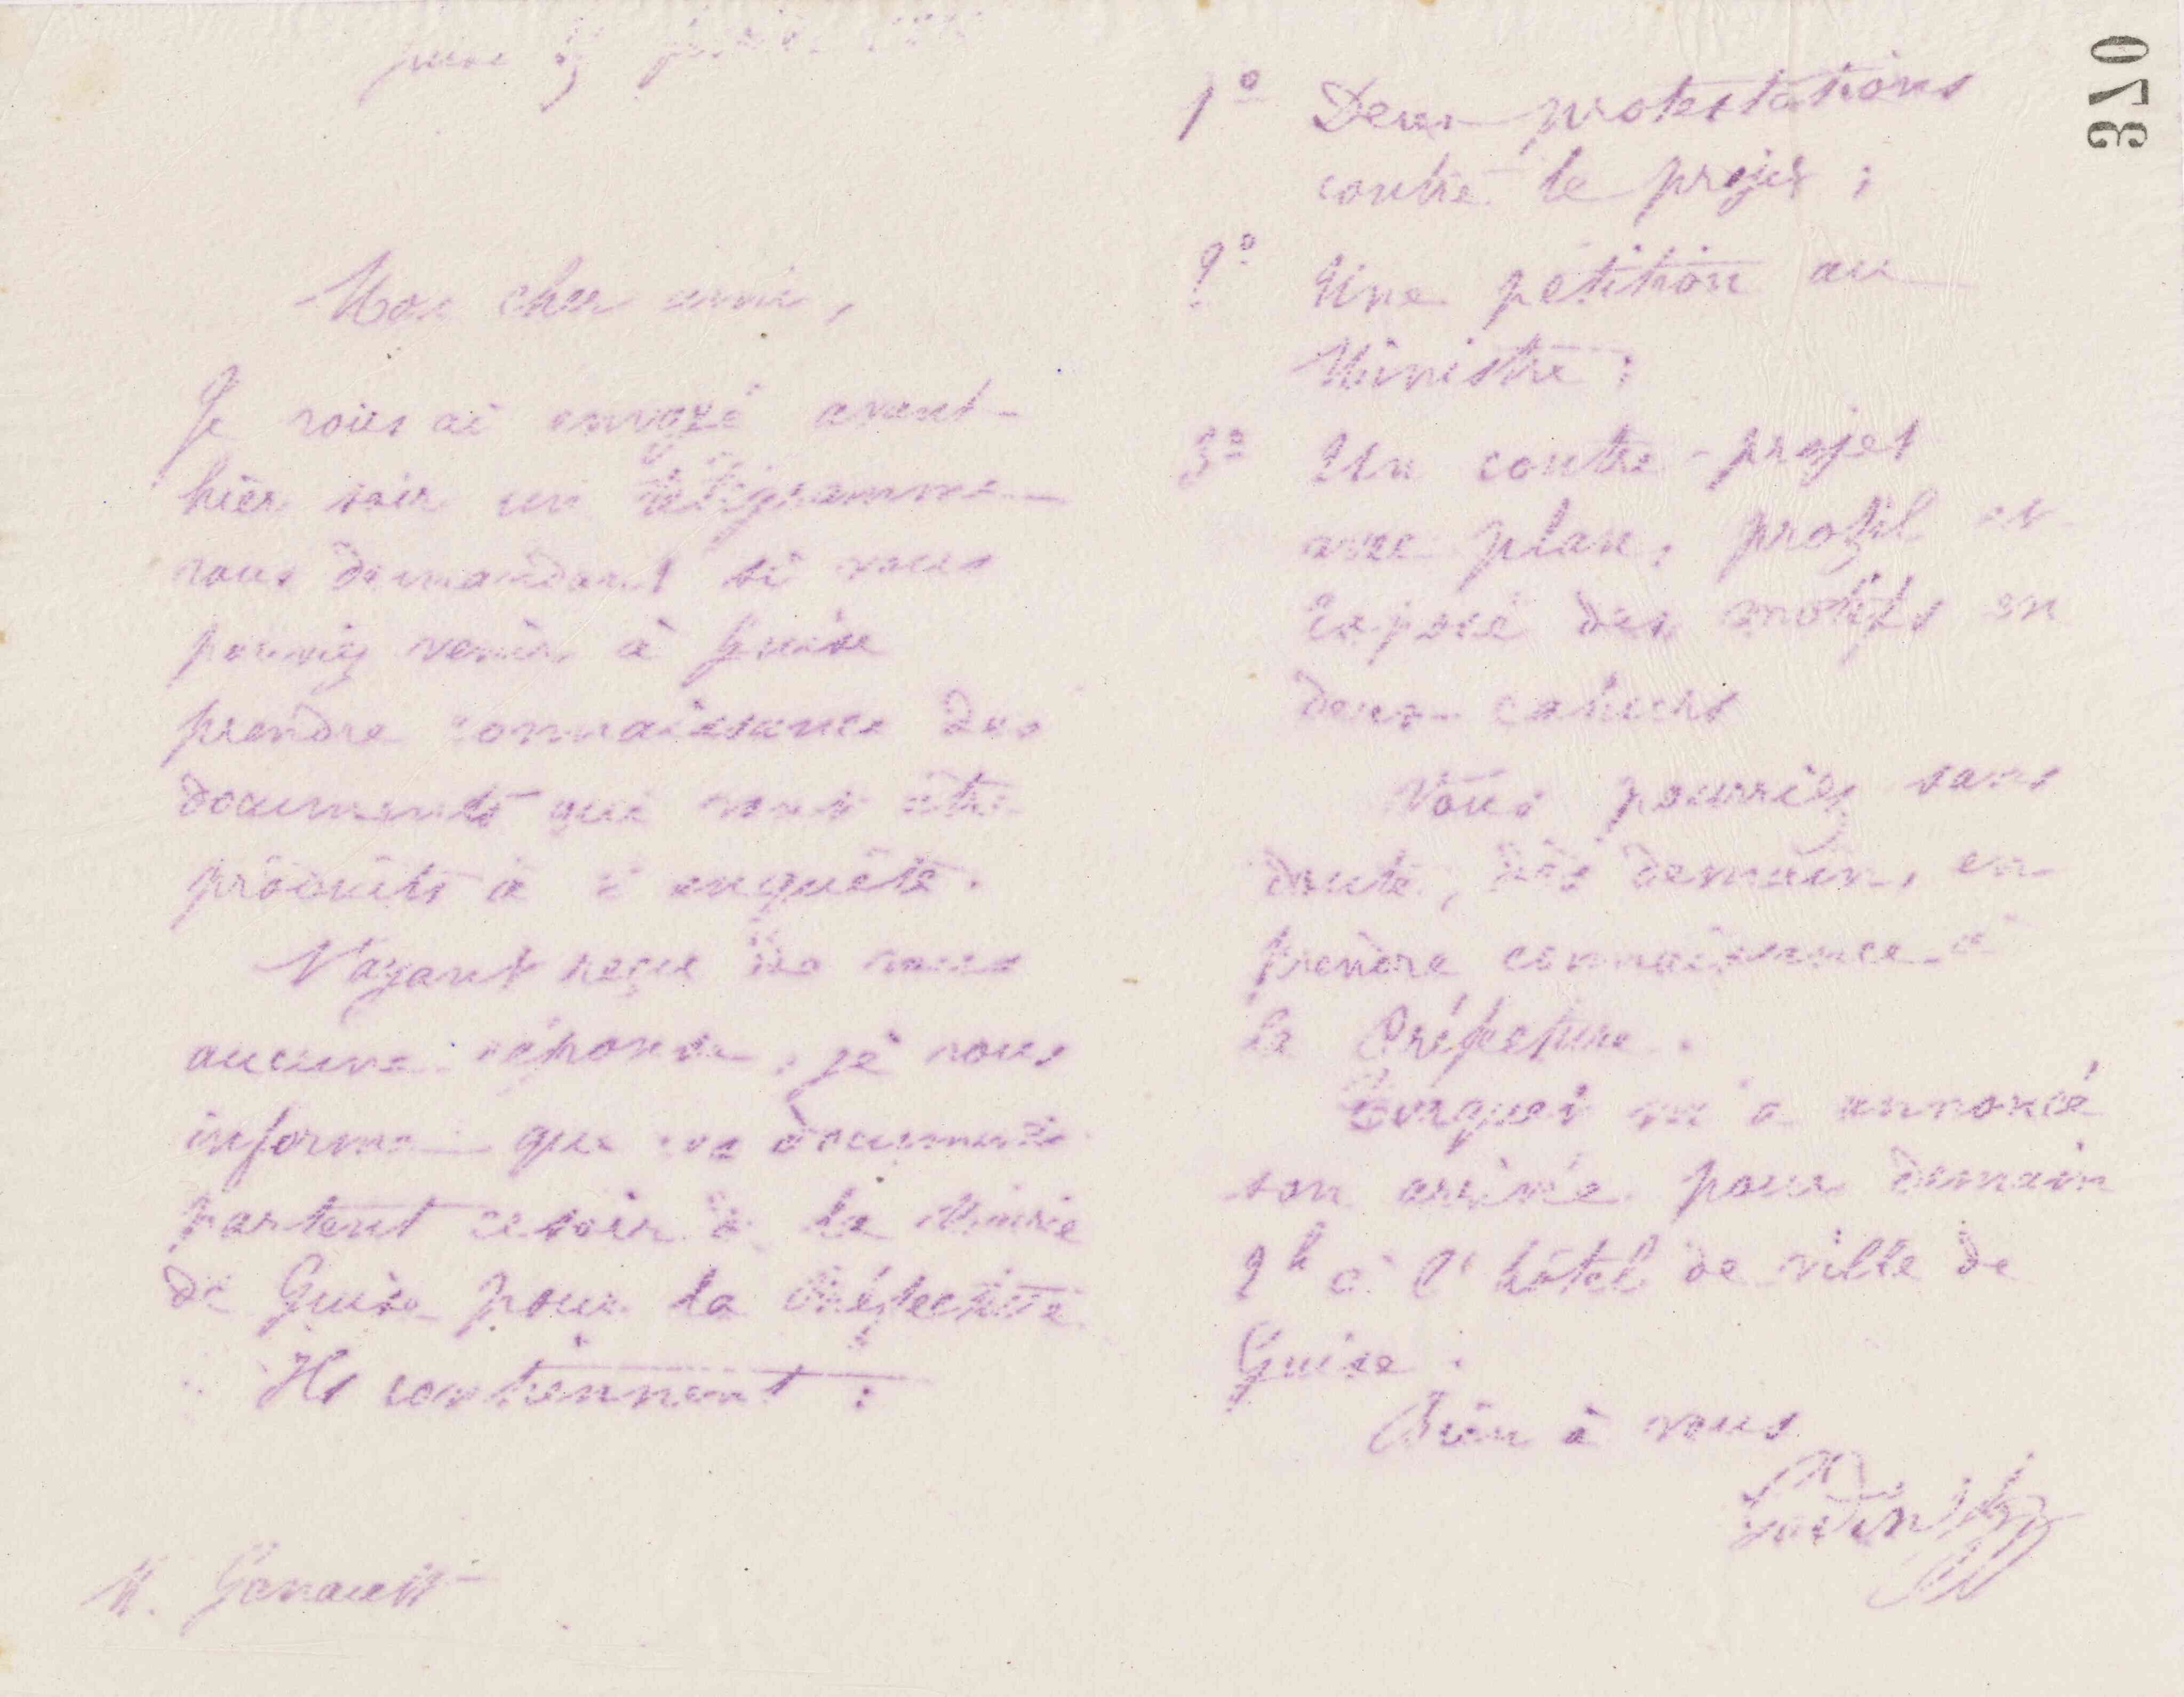 Mon cher ami,
Je vous ai envoyé avant-
hier soir un télégramme
vous demandant si vous
pouviez venir à Guise
prendre connaissance des
documents qui vont être
produits à l'enquête.
N'ayant reçu de vous
aucune réponse, je vous
informe que ces documents
partent ce soir de la Mairie
de Guise pour la Préfecture
Ils contiennent :
M. Ganault
320
1º Deux protestations
contre le projet ;
2º Une pétition au
Ministre ;
3º Un contre-projet
avec plan, profil et
Exposé des motifs en
deux cahiers
Vous pourriez sans
doute, dès demain, en
prendre connaissance à
la Préfecture.
Turquet m'a annoncé
son arrivée pour demain
2h à l'hôtel de ville de
Guise.
Bien à vous
Godin